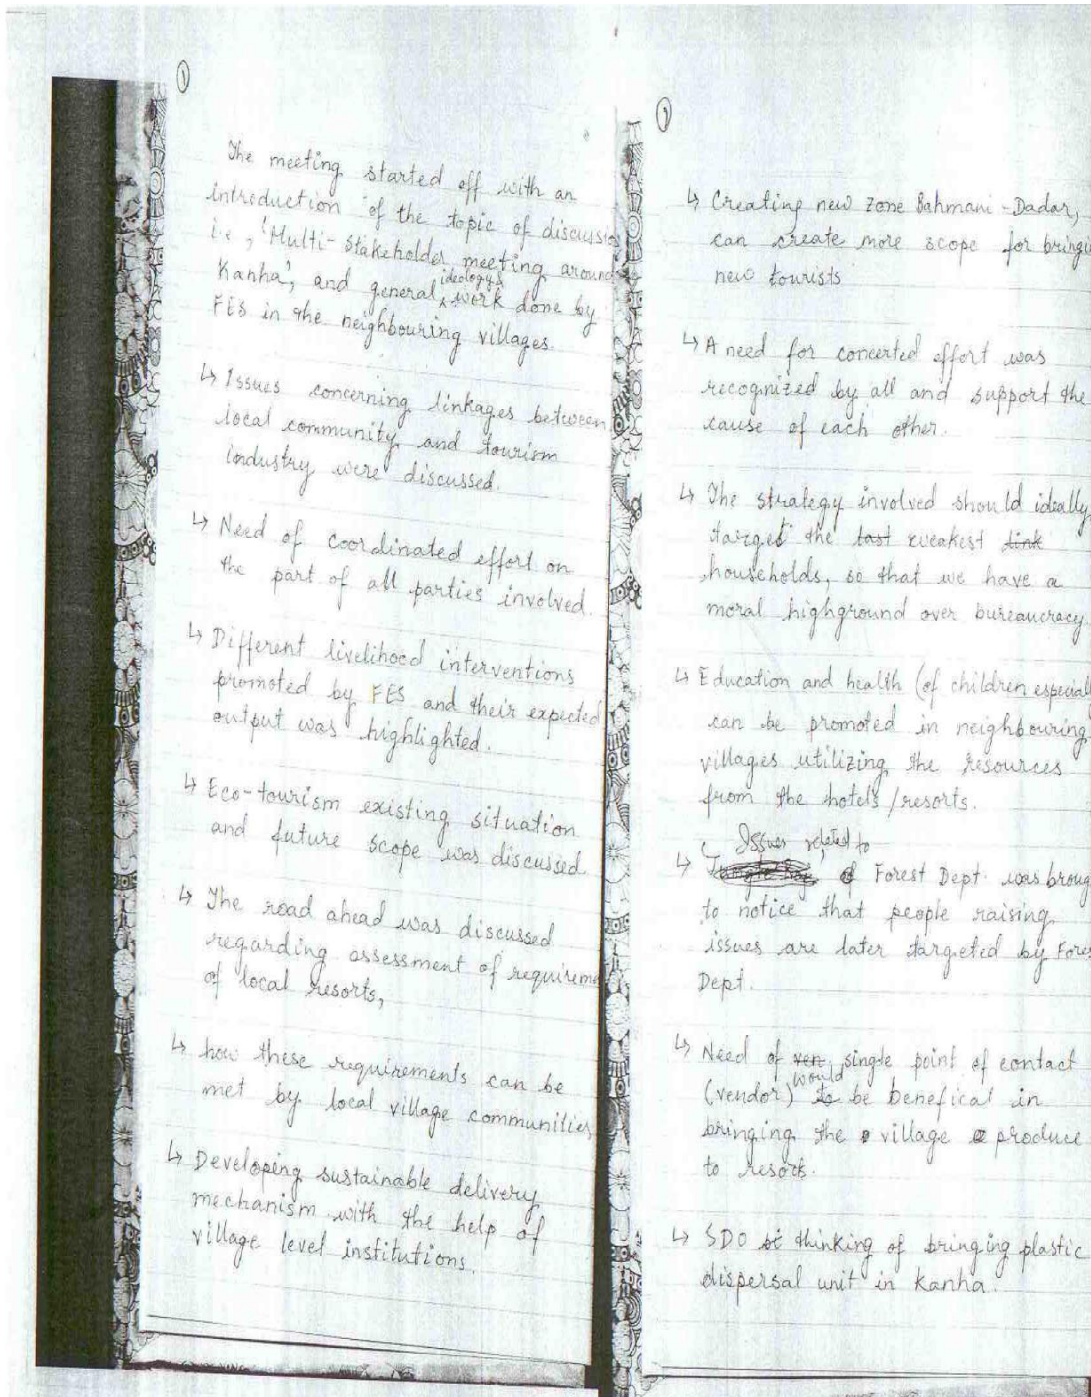 ①
The meeting started off with an
introduction of the topic of discussi
i.e, 'Multi-stakeholder meeting around
Kanha', and general ideology & work done by
FES in the neighbouring villages.
↳ Issues concerning linkages between
local community and tourism
industry were discussed.
↳ Need of coordinated effort on
the part of all parties involved.
↳ Different livelihood interventions
promoted by FES and their expected
output was highlighted.
↳ Eco-tourism existing situation
and future scope was discussed
↳ The road ahead was discussed
regarding assessment of requireme
of local resorts,
↳ how these requirements can be
met by local village communities
↳ Developing sustainable delivery
mechanism with the help of
village level institutions.
↳ Creating new zone Bahmani-Dadar,
can create more scope for bringi
new tourists
↳ A need for concerted effort was
recognized by all and support the
cause of each other.
↳ The strategy involved should ideally
target the last weakest link
households, so that we have a
moral highground over bureaucracy.
↳ Education and health (of children especial
can be promoted in neighbouring
villages utilizing the resources
from the hotels/resorts.
Issues related to
↳ Forest Dept. was broug
to notice that people raising
issues are later targeted by Fores
Dept.
↳ Need of ven single point of contact
(vendor) would to be benefical in
bringing the village produce
to resorts.
↳ SDO thinking of bringing plastic
dispersal unit in Kanha.